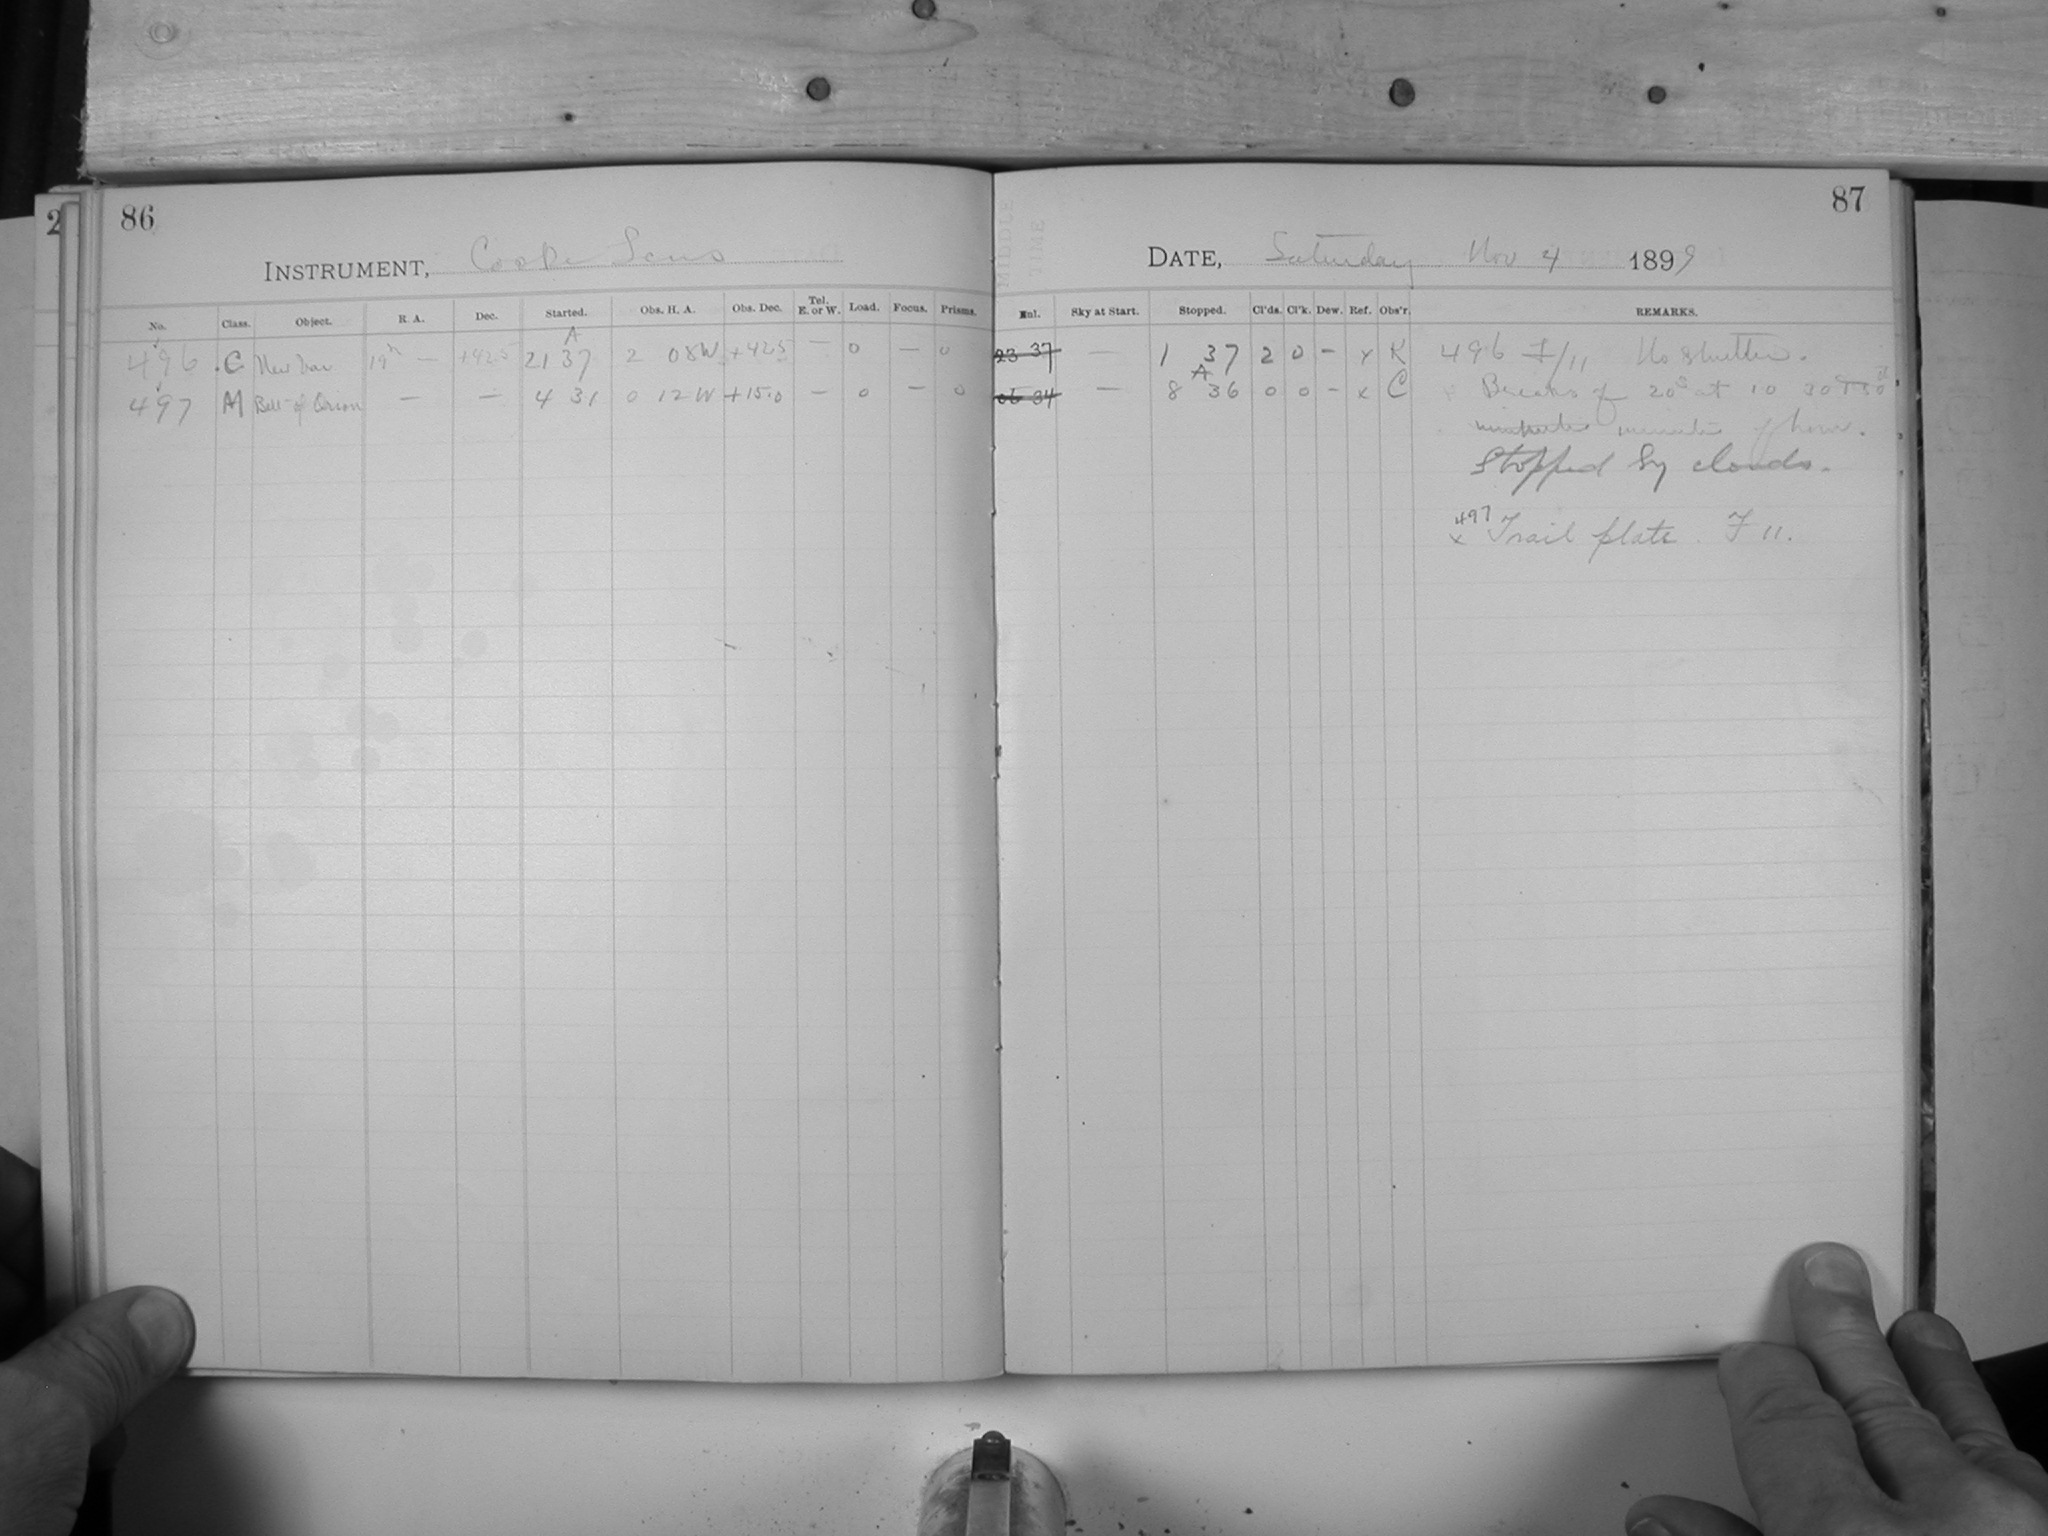 2
86
INSTRUMENT, Cooke Lens
No. Class. Object. R. A. Dec. Started. Obs. H. A. Obs. Dec. Tel. E. or W. Load. Focus. Prisms.
A
496 C 19h — +42.5 21 37 2 08W +42.5 — 0 — 0
497 M Belt of Orion — — 4 31 0 12 W +15.0 — 0 — 0
87
DATE, Saturday Nov 4 1899
Enl. Sky at Start. Stopped. Cl'ds. Cl'k. Dew. Ref. Obs'r. REMARKS.
23 37 — 1 37 2 0 – x K 496 F/11 No Shutter.
A
06 34 — 8 36 0 0 – x C x Breaks of 20s at 10 30 + 50
minutes of hour.
Stopped by clouds.
497
x Trail plate. F 11.